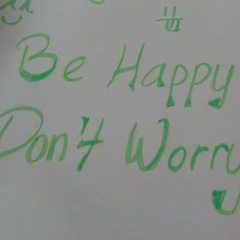 Be Happy
Don't Worry